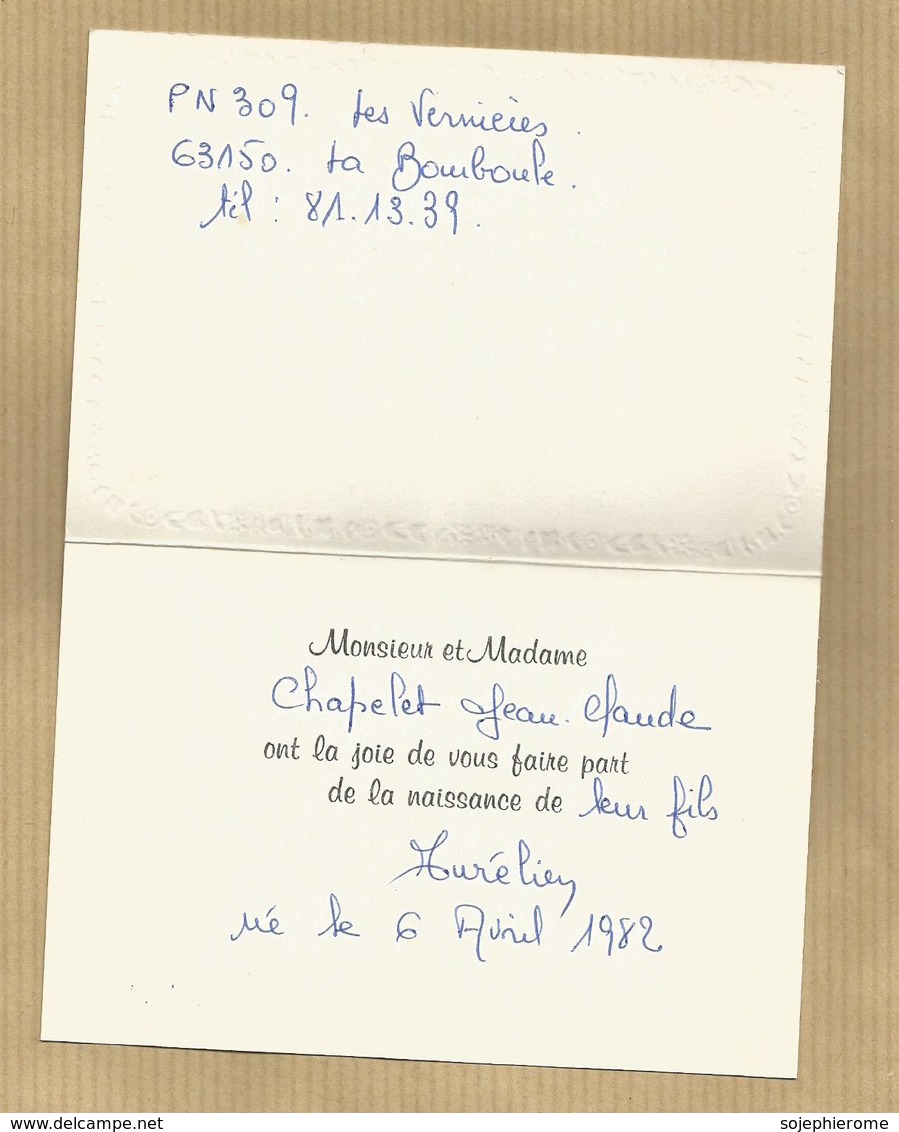 PN 309. Les Vernières.
63150. La Bourboule.
tél : 81.13.39.
Monsieur et Madame
Chapelet Jean. Claude
ont la joie de vous faire part
de la naissance de leur fils
Aurélien
né le 6 Avril 1982
delcampe.net
sojephierome